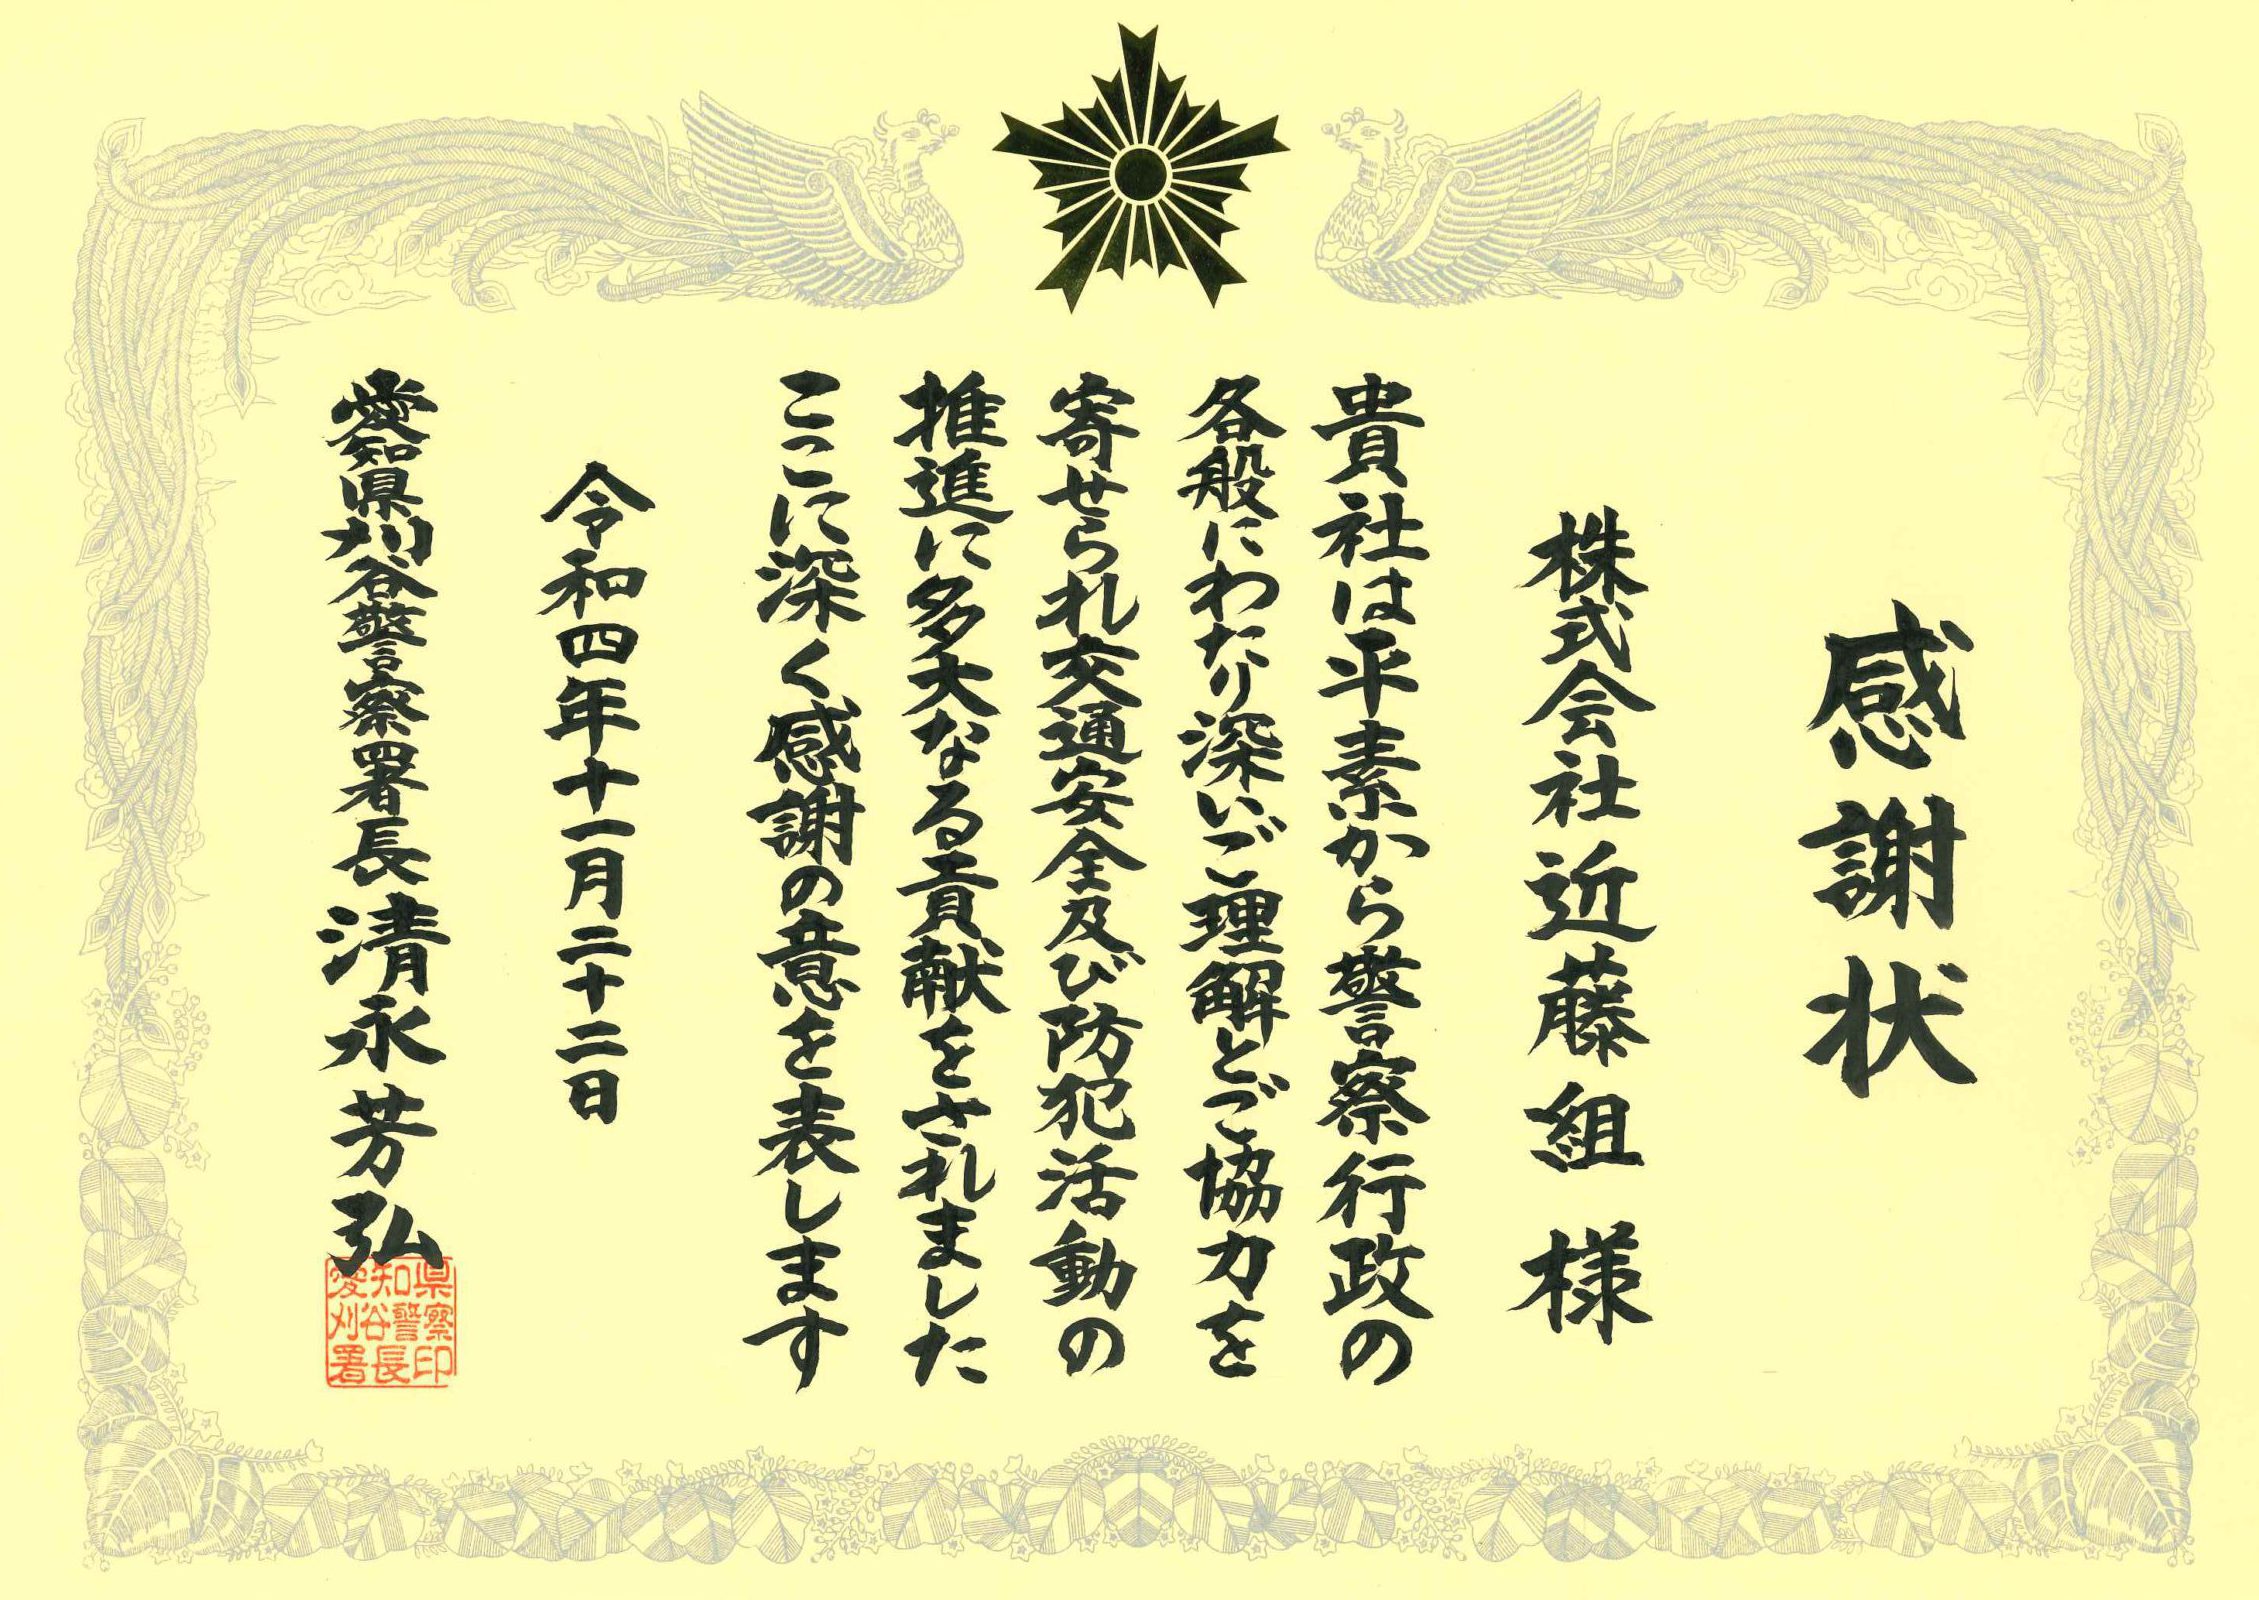 感謝状
株式会社近藤組 様
貴社は平素から警察行政の
各般にわたり深いご理解とご協力を
寄せられ交通安全及び防犯活動の
推進に多大なる貢献をされました
ここに深く感謝の意を表します
令和四年十一月二十二日
愛知県刈谷警察署長 清永芳弘
愛知県
刈谷警察
署長印